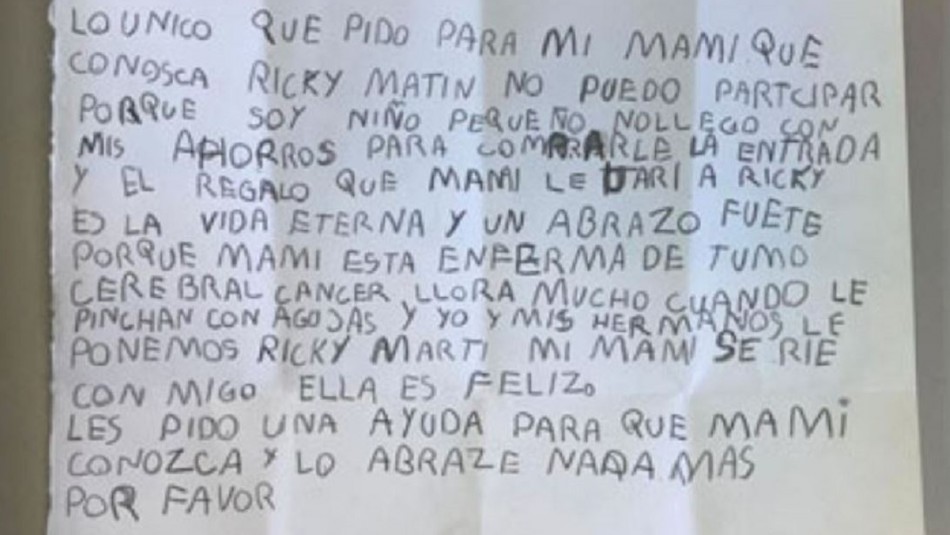 LO UNICO QUE PIDO PARA MI MAMI QUE
CONOSCA RICKY MATIN NO PUEDO PARTCIPAR
PORQUE SOY NIÑO PEQUEÑO NOLLEGO CON
MIS AHORROS PARA COMPRARLE LA ENTRADA
Y EL REGALO QUE MAMI LE DARI A RICKY
ES LA VIDA ETERNA Y UN ABRAZO FUETE
PORQUE MAMI ESTA ENFERMA DE TUMO
CEREBRAL CANCER, LLORA MUCHO CUANDO LE
PINCHAN CON AGUJAS Y YO Y MIS HERMANOS LE
PONEMOS RICKY MARTI MI MAMI SE RIE
CON MIGO ELLA ES FELIZ.
LES PIDO UNA AYUDA PARA QUE MAMi
CONOZCA Y LO ABRAZE NADA MAS
POR FAVOR